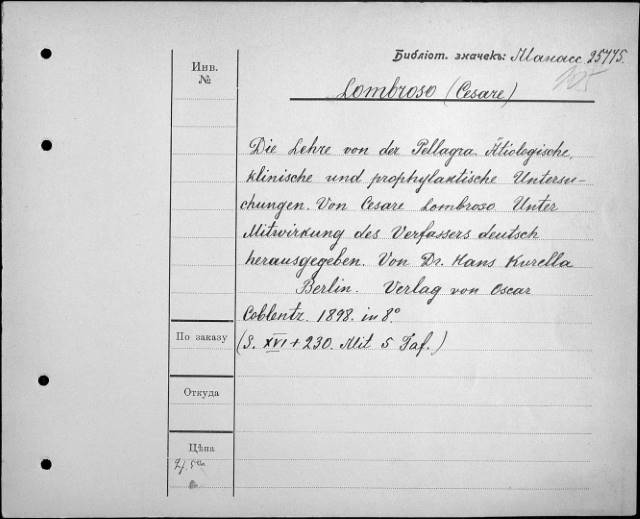 Библіот. значекъ: Манасс. 25775.
Инв.
№
Lombroso (Cesare)
Die Lehre von der Pellagra. Ätiologische,
klinische und prophylaktische Untersu-
chungen. Von Cesare Lombroso. Unter
Mitwirkung des Verfassers deutsch
herausgegeben. Von Dr. Hans Kurella
Berlin. Verlag von Oscar
Coblentz. 1898. in 8°
По заказу
(S. XVI + 230. Mit 5 Taf.)
Откуда
Цѣна